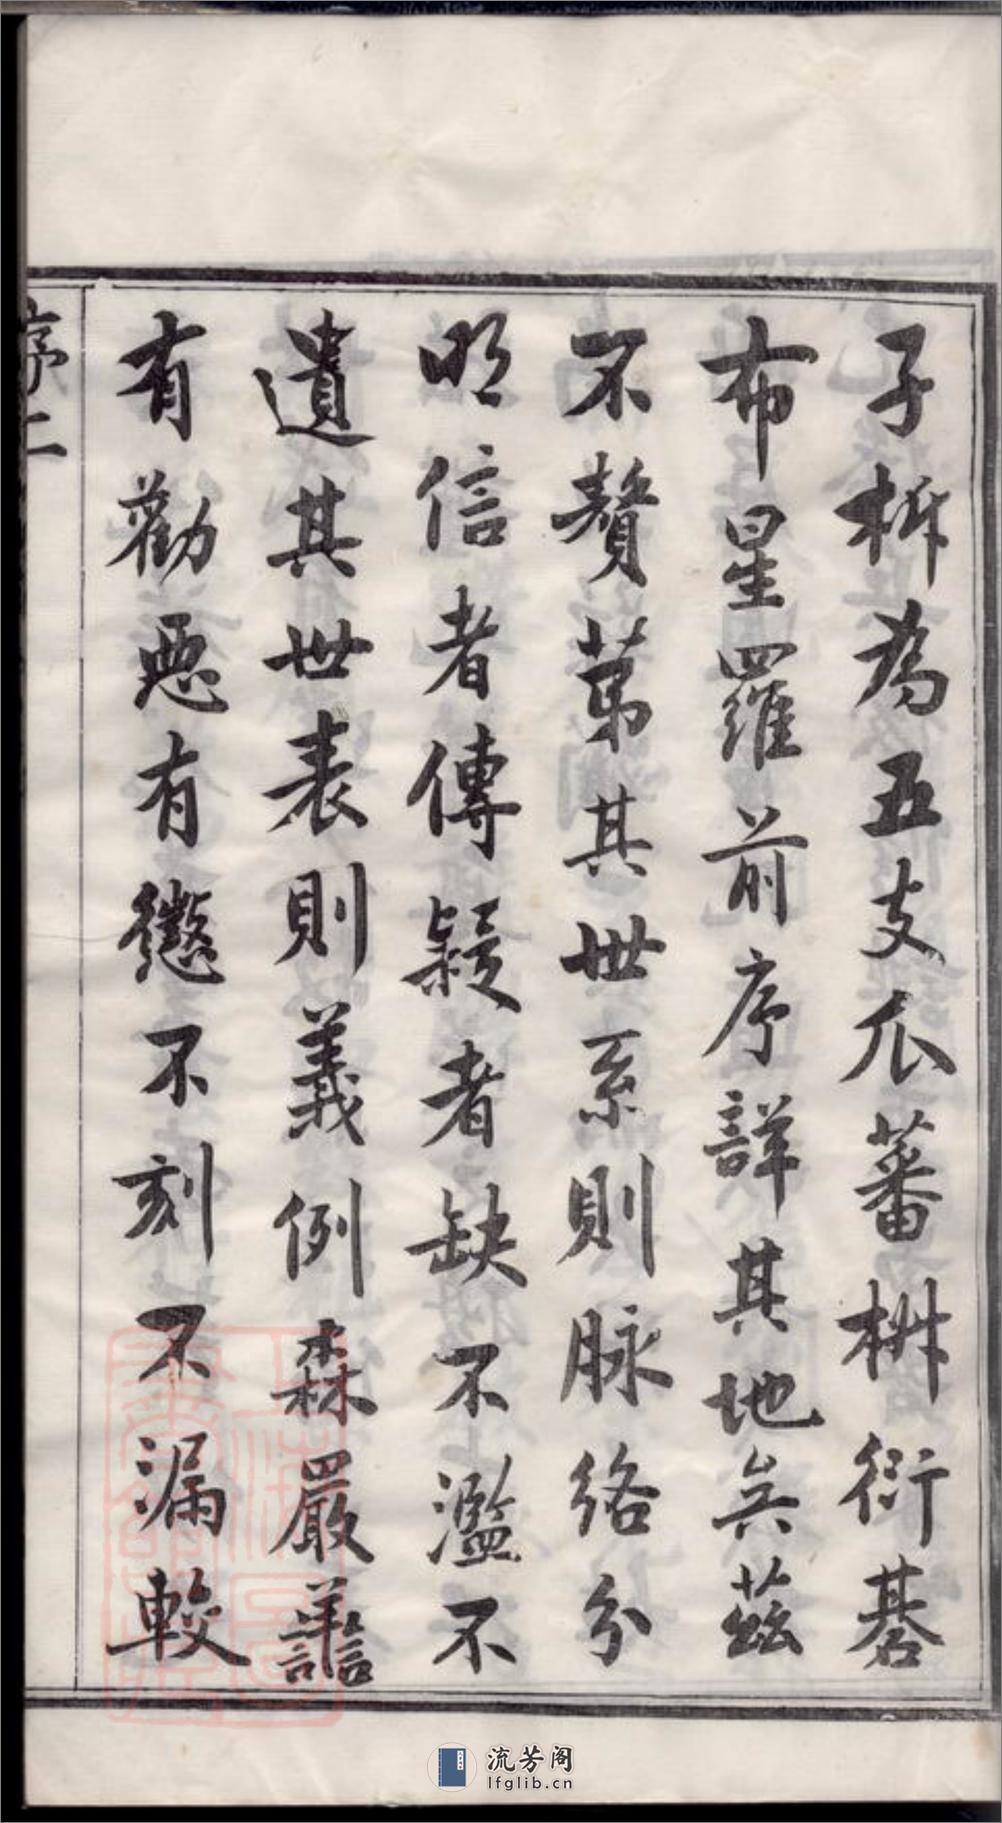 子柝為五支瓜蕃椒衍碁
布星羅前序詳其地矣茲
不贅苐其世系則脉絡分
明信者傳疑者缺不濫不
遺其世表則義例森嚴譱
有勸惡有懲不刻不漏較
序二
流芳阁
lfglib.cn